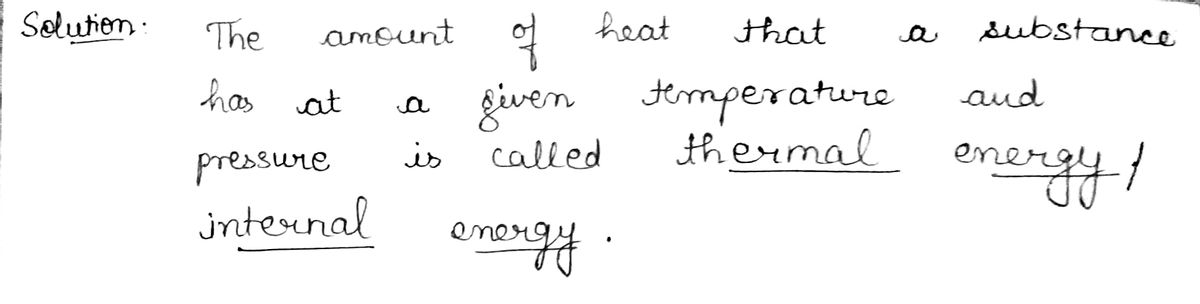 Solution: The amount of heat that a substance
has at a given temperature and
pressure is called thermal energy/
internal energy.